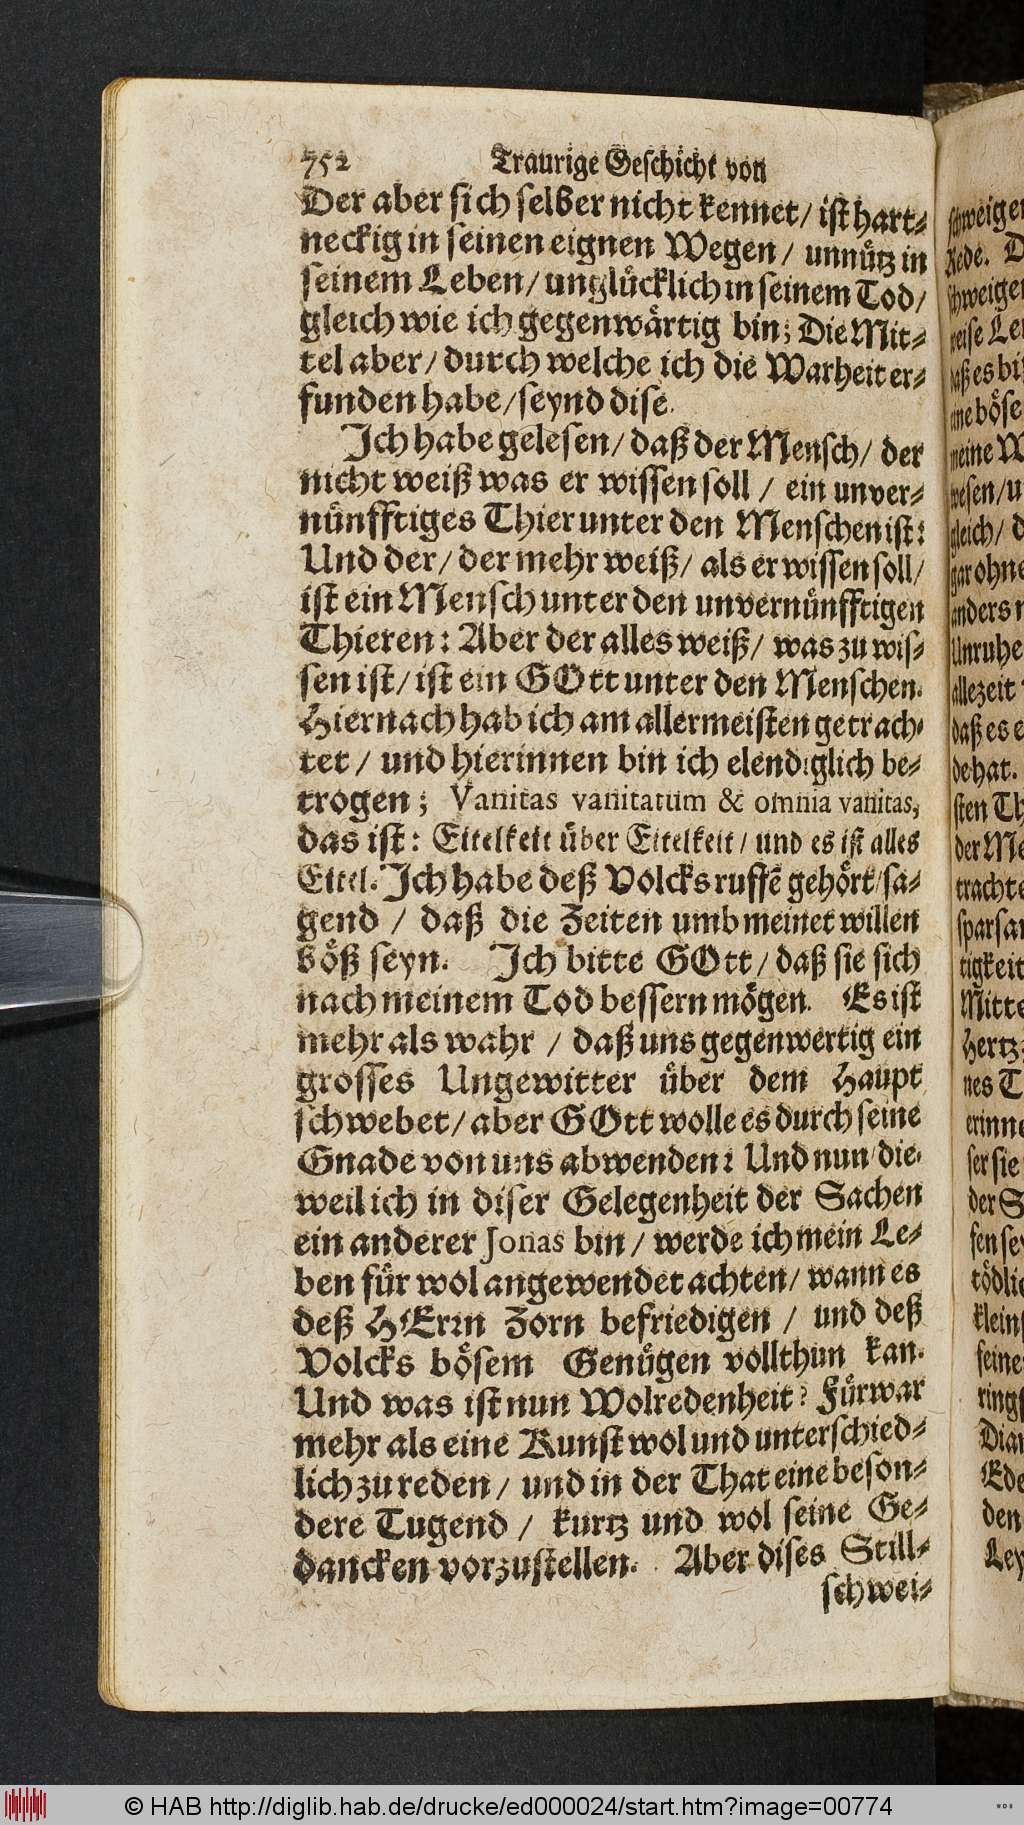 752 Traurige Geschicht von
Der aber sich selber nicht kennet/ ist hart-
neckig in seinen eignen Wegen/ unnütz in
seinem Leben/ unglücklich in seinem Tod/
gleich wie ich gegenwärtig bin; Die Mit-
tel aber/ durch welche ich die Warheit er-
funden habe/ seynd dise.
Ich habe gelesen/ daß der Mensch/ der
nicht weiß was er wissen soll / ein unver-
nünfftiges Thier unter den Menschen ist:
Und der/ der mehr weiß/ als er wissen soll/
ist ein Mensch unter den unvernünfftigen
Thieren: Aber der alles weiß/ was zu wis-
sen ist/ ist ein GOtt unter den Menschen.
Hiernach hab ich am allermeisten getrach-
tet / und hierinnen bin ich elendiglich be-
trogen; Vanitas vanitatum & omnia vanitas,
das ist: Eitelkeit über Eitelkeit/ und es ist alles
Eitel. Ich habe deß Volcks ruffẽ gehört/ sa-
gend / daß die Zeiten umb meinet willen
böß seyn. Ich bitte GOtt/ daß sie sich
nach meinem Tod bessern mögen. Es ist
mehr als wahr / daß uns gegenwertig ein
grosses Ungewitter über dem Haupt
schwebet/ aber GOtt wolle es durch seine
Gnade von uns abwenden: Und nun/ die-
weil ich in diser Gelegenheit der Sachen
ein anderer Jonas bin/ werde ich mein Le-
ben für wol angewendet achten/ wann es
deß HErrn Zorn befriedigen / und deß
Volcks bösem Genügen vollthun kan.
Und was ist nun Wolredenheit? Fürwar
mehr als eine Kunst wol und unterschied-
lich zu reden / und in der That eine beson-
dere Tugend / kurtz und wol seine Ge-
dancken vorzustellen. Aber dises Still-
schwei-
© HAB http://diglib.hab.de/drucke/ed000024/start.htm?image=00774